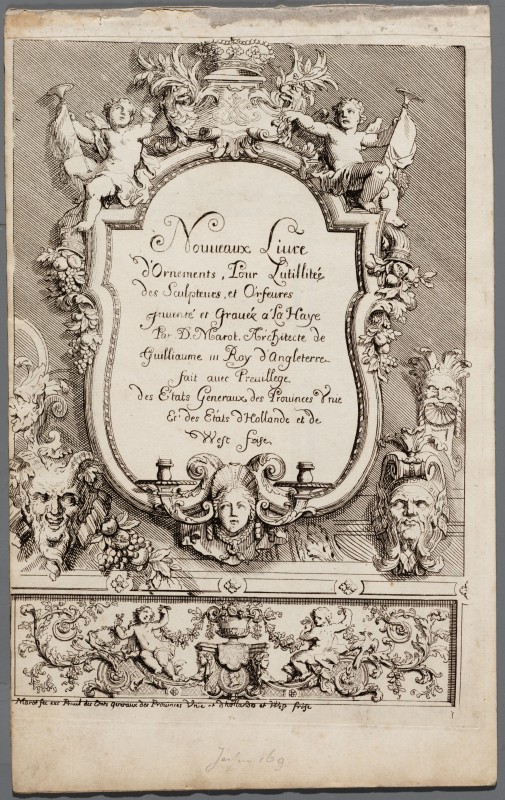 Nouueaux Liure
d'Ornements, Pour Lutillité
des Sculpteurs, et Orfeures
jnuenté et Grauéz a La Haye
Par D. Marot, Architecte de
Guilliaume III Roy d'Angleterre
fait auec Preuillege
des Etats Generaux des Prouinces Vnie
Et des Etats d'Hollande et de
West frise
Marot fec exc Priuil des Etats generaux des Prouinces Vnie et d'hollandes et Wesp frise
1